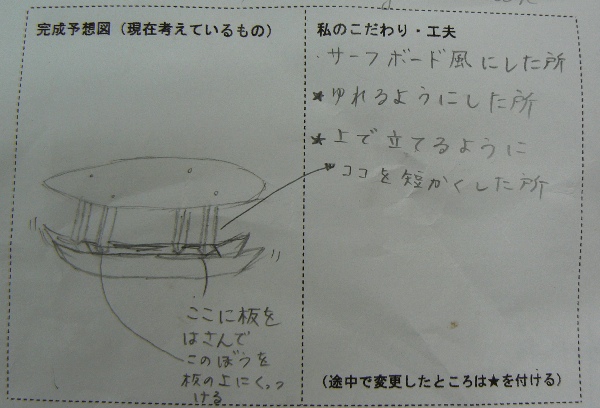 完成予想図（現在考えているもの）
ここに板を
はさんで
このぼうを
板の上にくっつ
ける
私のこだわり・工夫
・サーフボード風にした所
★ゆれるようにした所
★上で立てるように
★ココを短かくした所
（途中で変更したところは★を付ける）